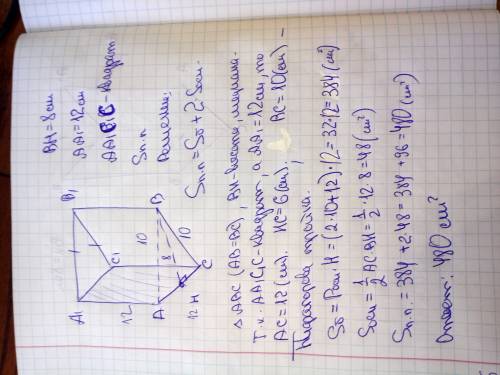 BH = 8 см
AA₁ = 12 см
AA₁C₁C - квадрат
Sп.п
Решение:
Sп.п = Sб + 2·Sосн.
B₁
A₁
C₁
B
A
C
10
10
8
12
12
H
△ ABC (AB=BC), BH - высота, медиана.
Т.к. AA₁C₁C - квадрат, а AA₁ = 12 см, то
AC = 12 (см). HC = 6 (см). AC = 10 (см) -
Пифагорова тройка.
Sб = Pосн · H = (2·10+12)·12 = 32·12 = 384 (см²)
Sосн = 1/2 AC·BH = 1/2 · 12·8 = 48 (см²)
Sп.п. = 384 + 2·48 = 384 + 96 = 480 (см²)
Ответ: 480 см²